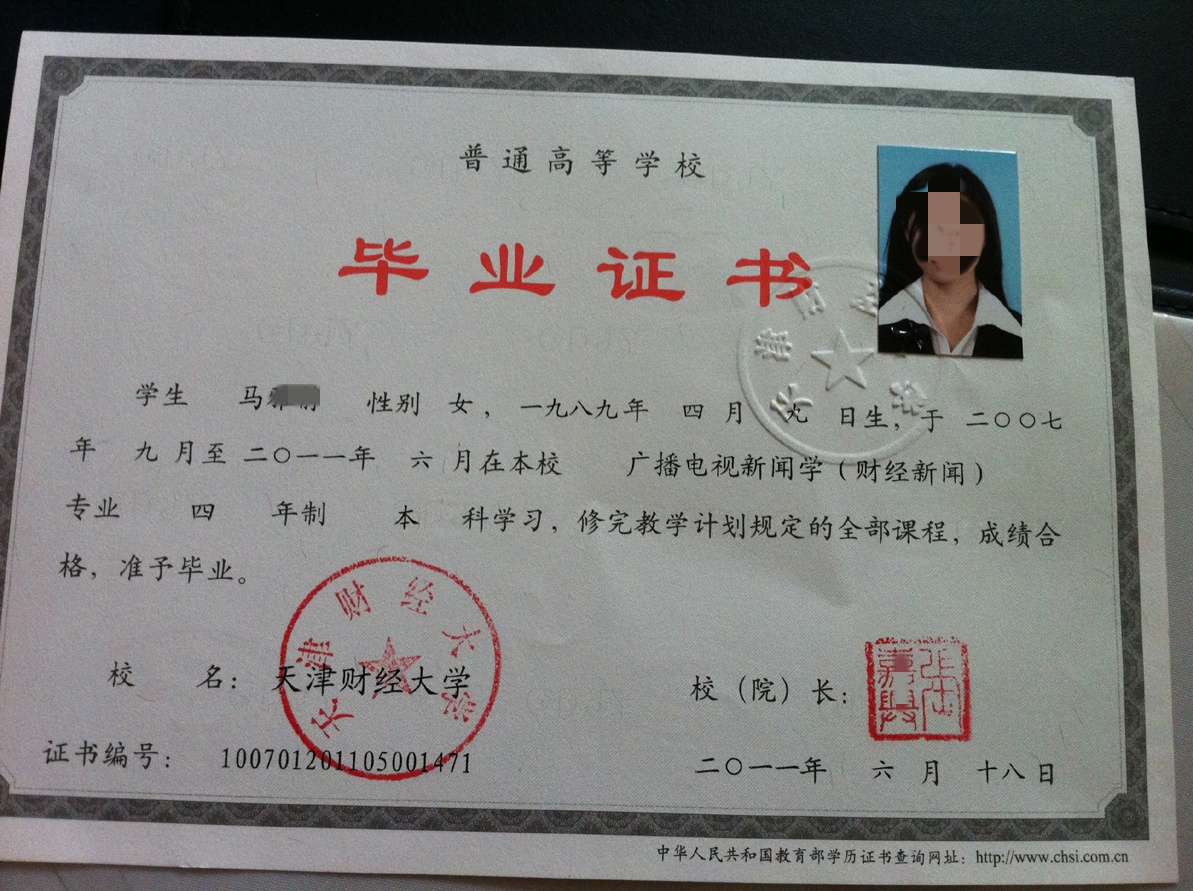 普通高等学校
毕业证书
学生 马 性别 女，一九八九年 四 月 九 日生，于 二〇〇七
年 九 月至 二〇一一年 六 月在本校 广播电视新闻学（财经新闻）
专业 四 年制 本 科学习，修完教学计划规定的全部课程，成绩合
格，准予毕业。
天津财经大学
校 名：天津财经大学
校（院）长：
证书编号： 100701201105001471
二〇一一年 六 月 十八 日
中华人民共和国教育部学历证书查询网址：http://www.chsi.com.cn